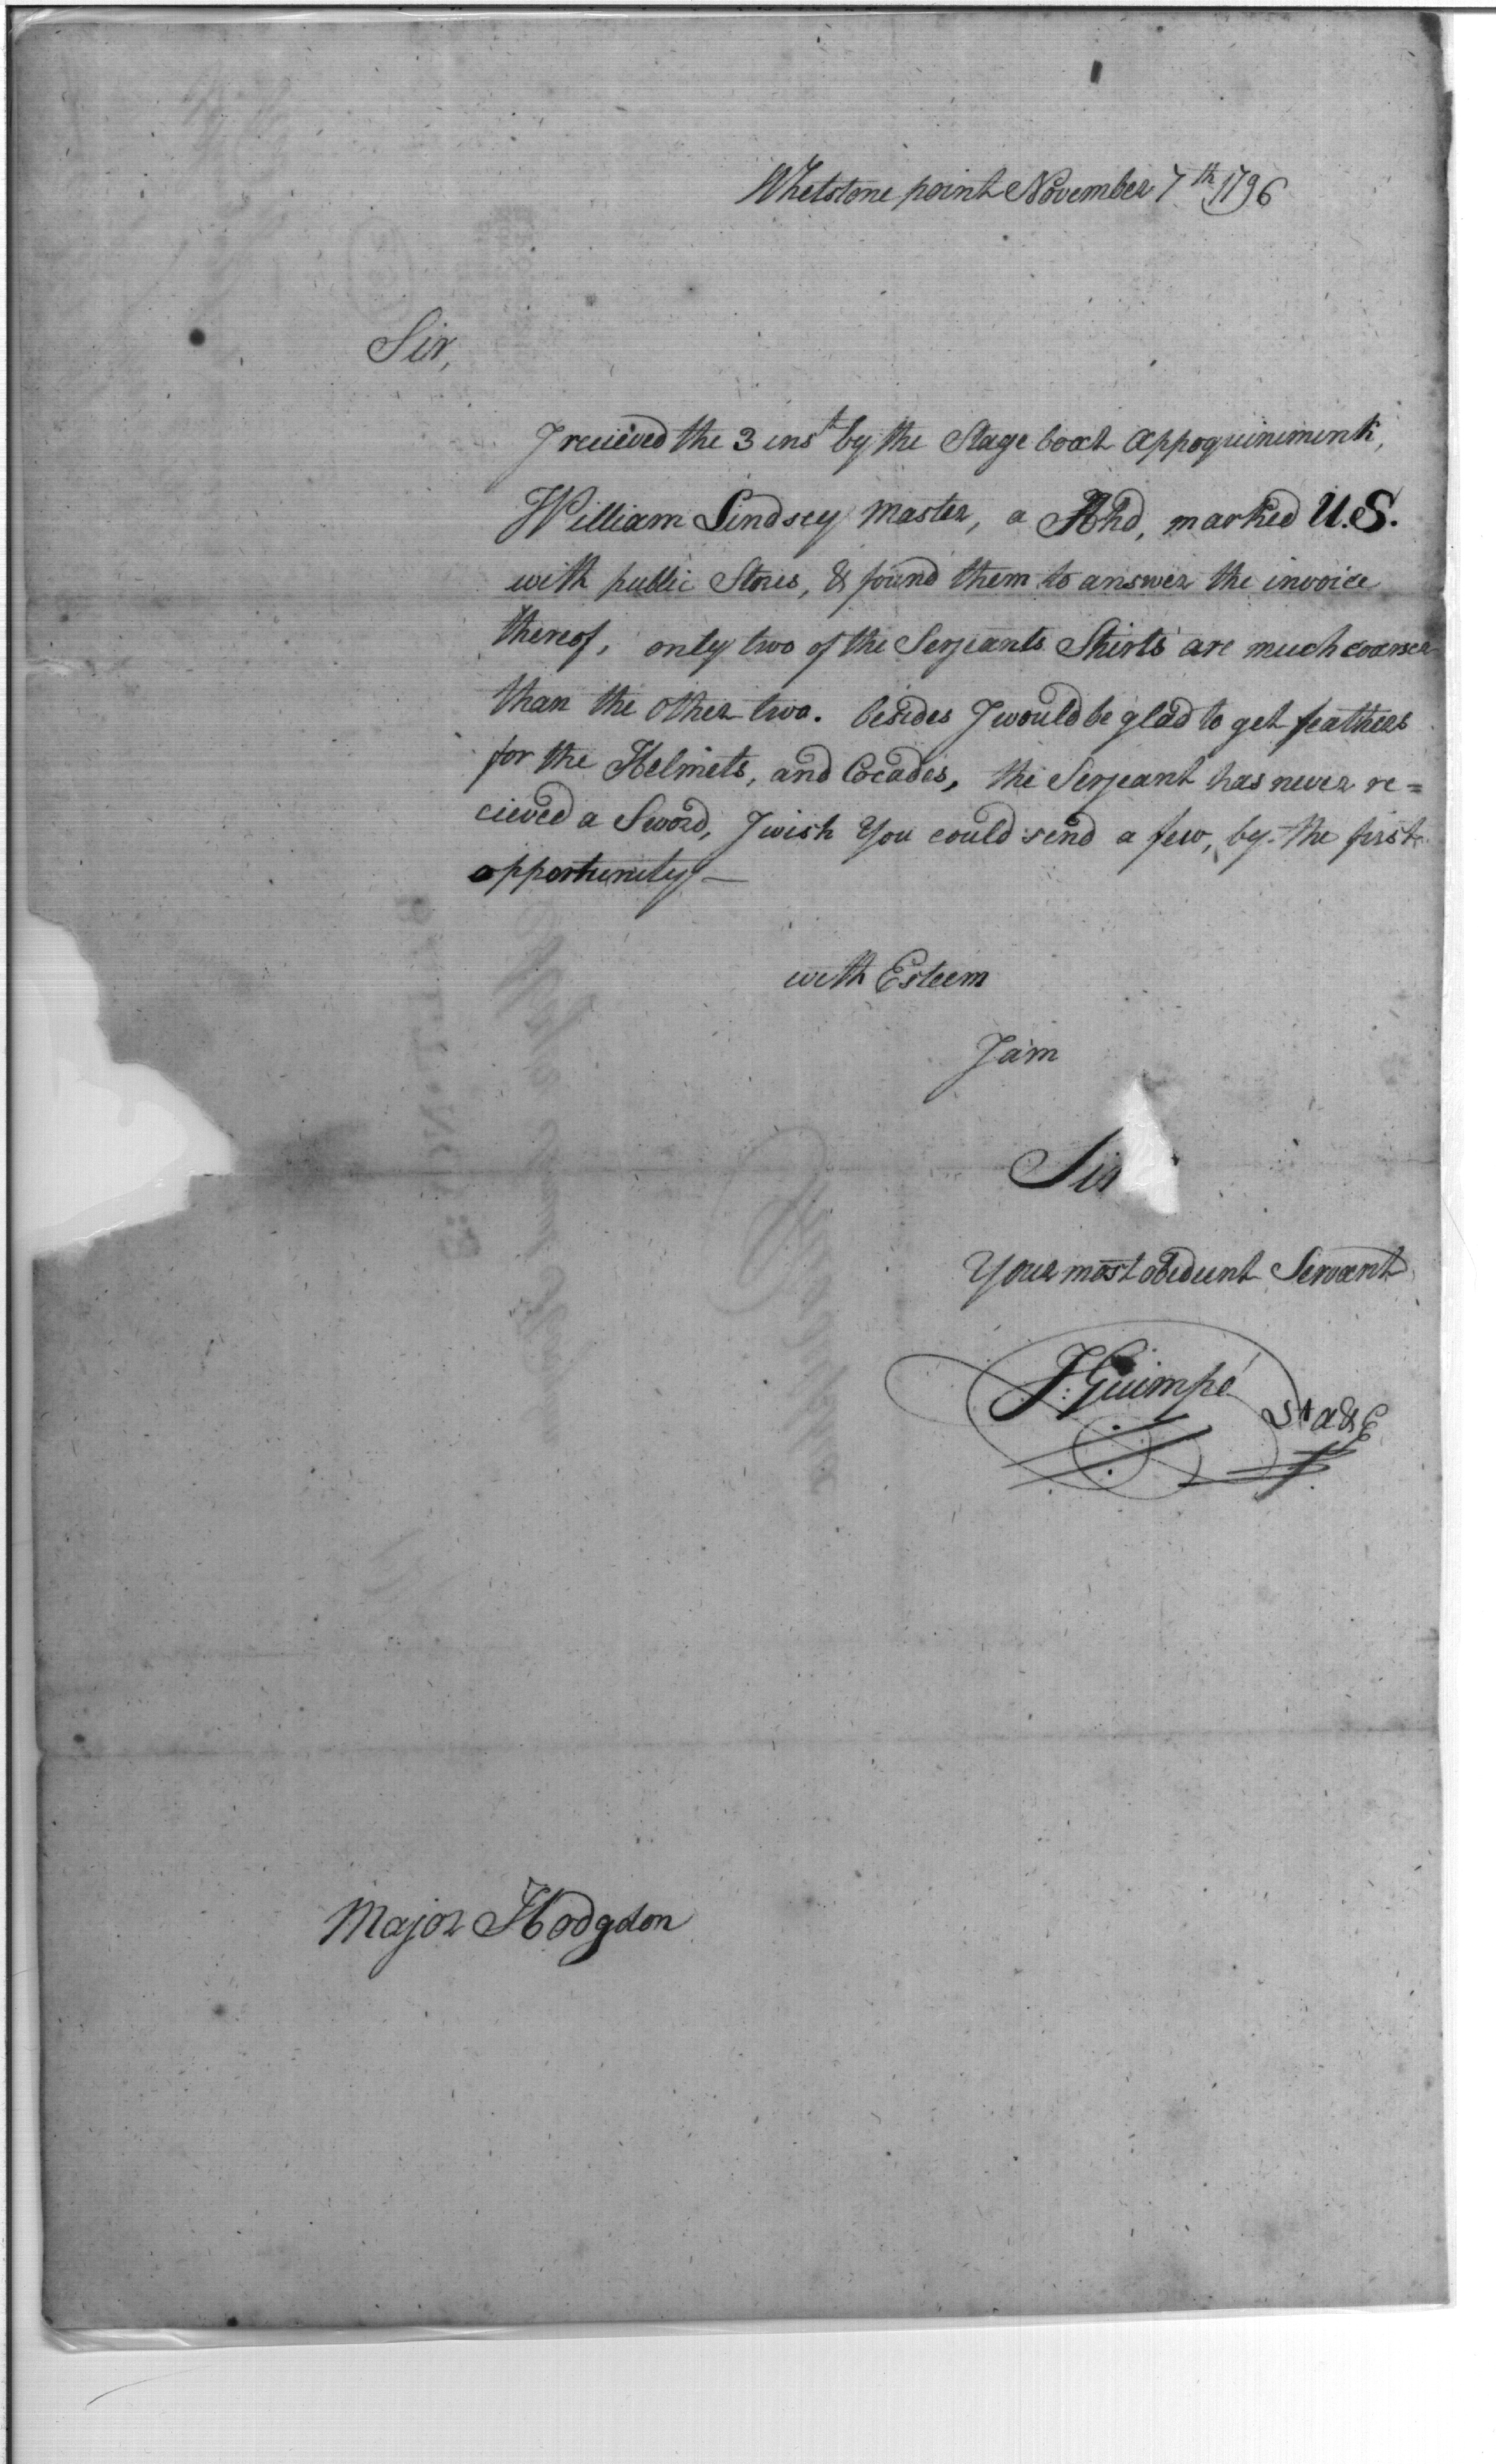 Whetstone point November 7th 1796
Sir,
I recieved the 3 inst by the Stage boat Appoquinimink,
William Lindsey Master, a Hhd, marked U.S.
with public Stores, & found them to answer the invoice
thereof, only two of the Serjeants Shirts are much coarser
than the other two. besides I would be glad to get feathers
for the Helmets, and Cocades, the Serjeant has never re=
cieved a Sword, I wish You could send a few, by the first
opportunity —
with Esteem
I am
Sir
Your most obedient Servant
J: Guimpé
Major Hodgdon